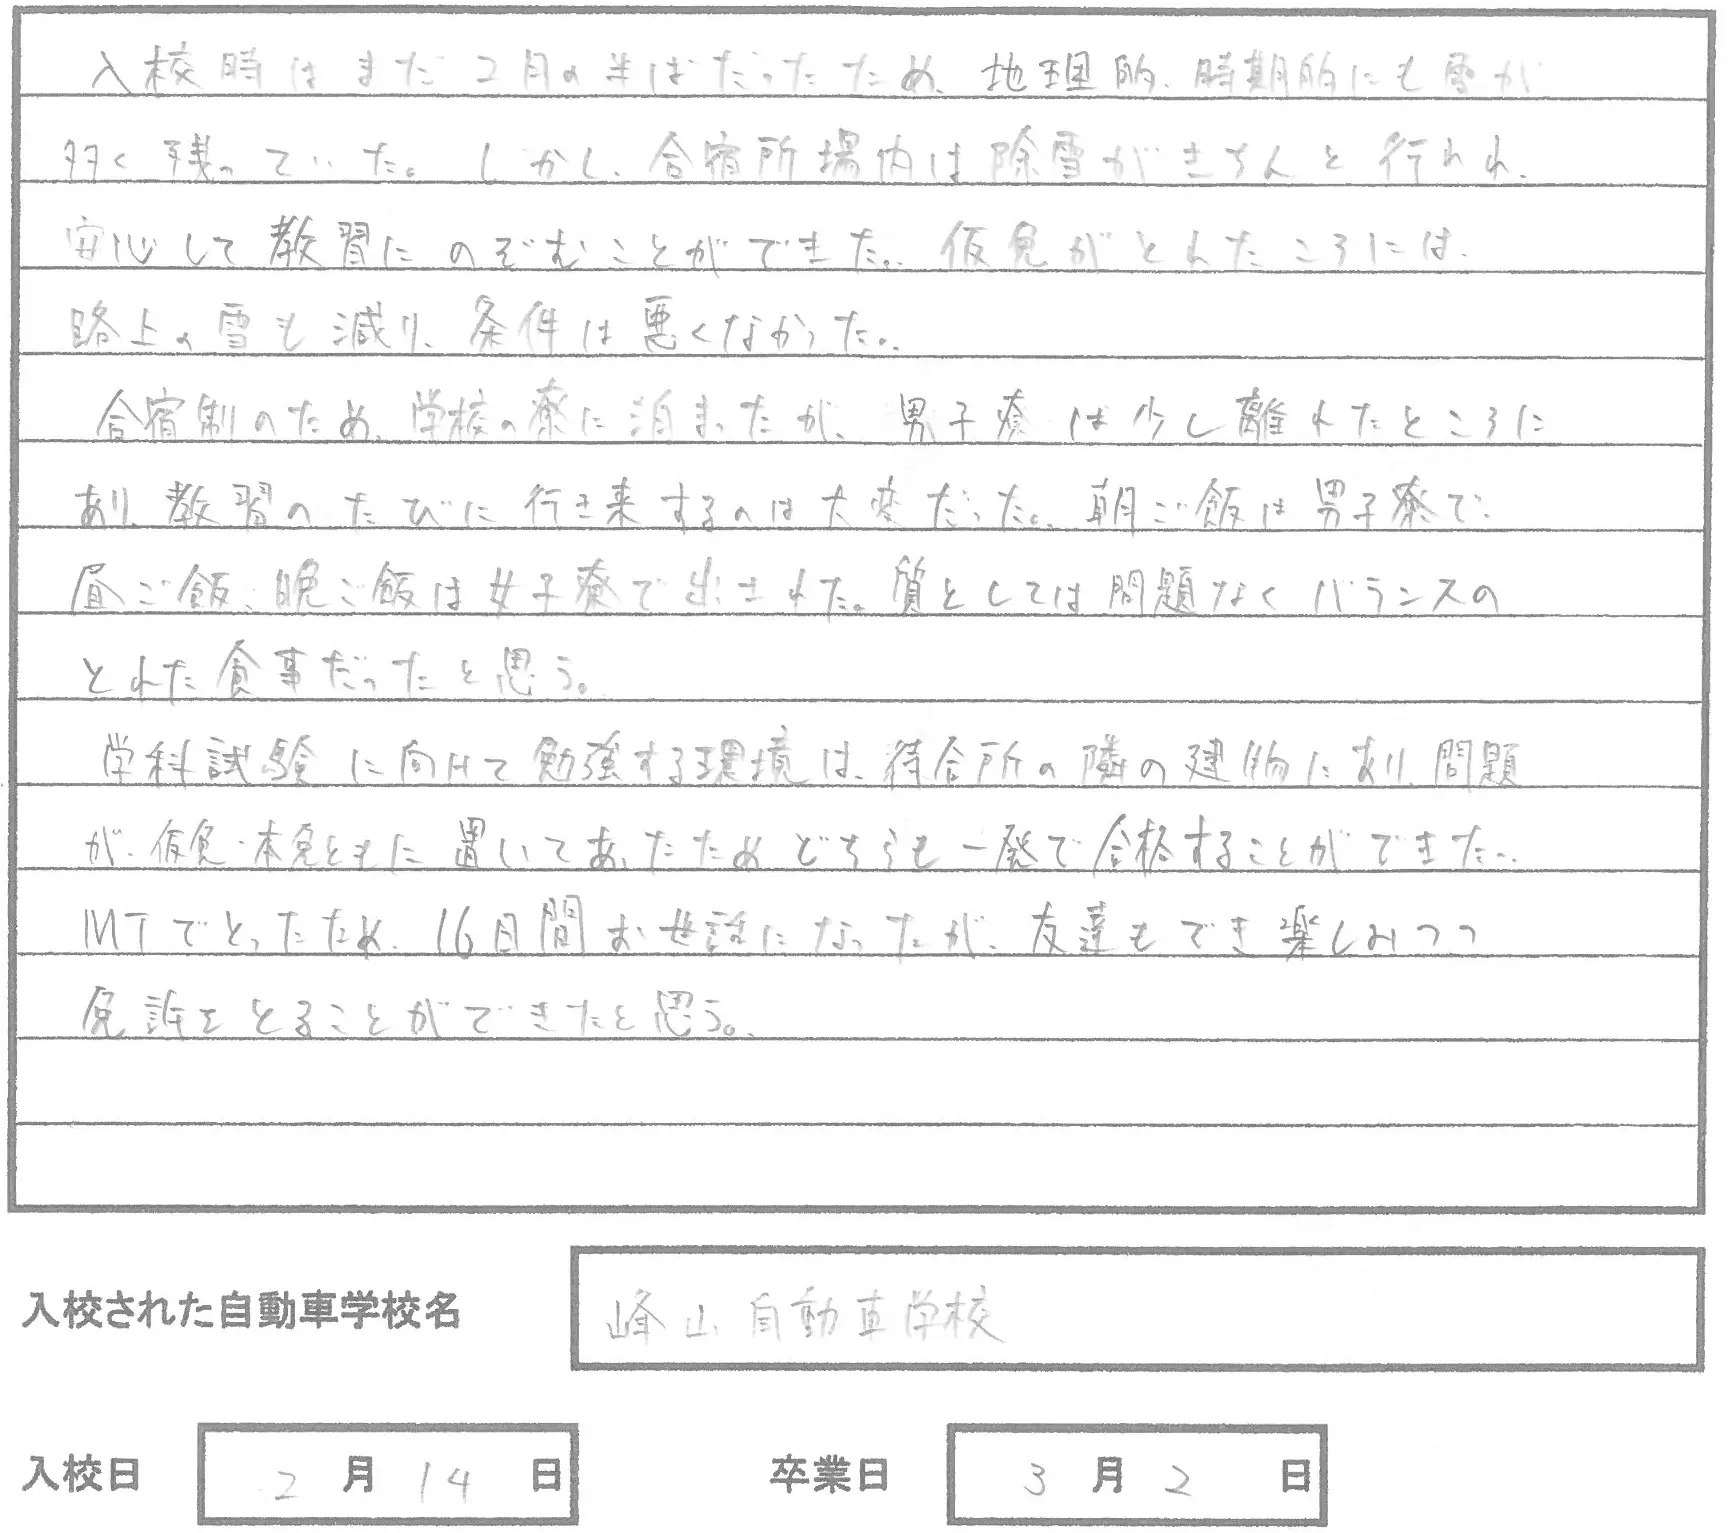 入校時はまだ2月の半ばだったため、地理的、時期的にも雪が
多く残っていた。しかし、合宿所場内は除雪がきちんと行われ、
安心して教習にのぞむことができた。仮免がとれたころには、
路上の雪も減り、条件は悪くなかった。
合宿制のため、学校の寮に泊まったが、男子寮は少し離れたところに
あり、教習のたびに行き来するのは大変だった。朝ご飯は男子寮で
昼ご飯、晩ご飯は女子寮で出された。質としては問題なくバランスの
とれた食事だったと思う。
学科試験に向けて勉強する環境は、待合所の隣の建物にあり、問題
が、仮免・本免ともに置いてあったためどちらも一発で合格することができた。
MTでとったため、16日間お世話になったが、友達もでき楽しみつつ
免許をとることができたと思う。
入校された自動車学校名 峰山自動車学校
入校日 2月14日 卒業日 3月2日